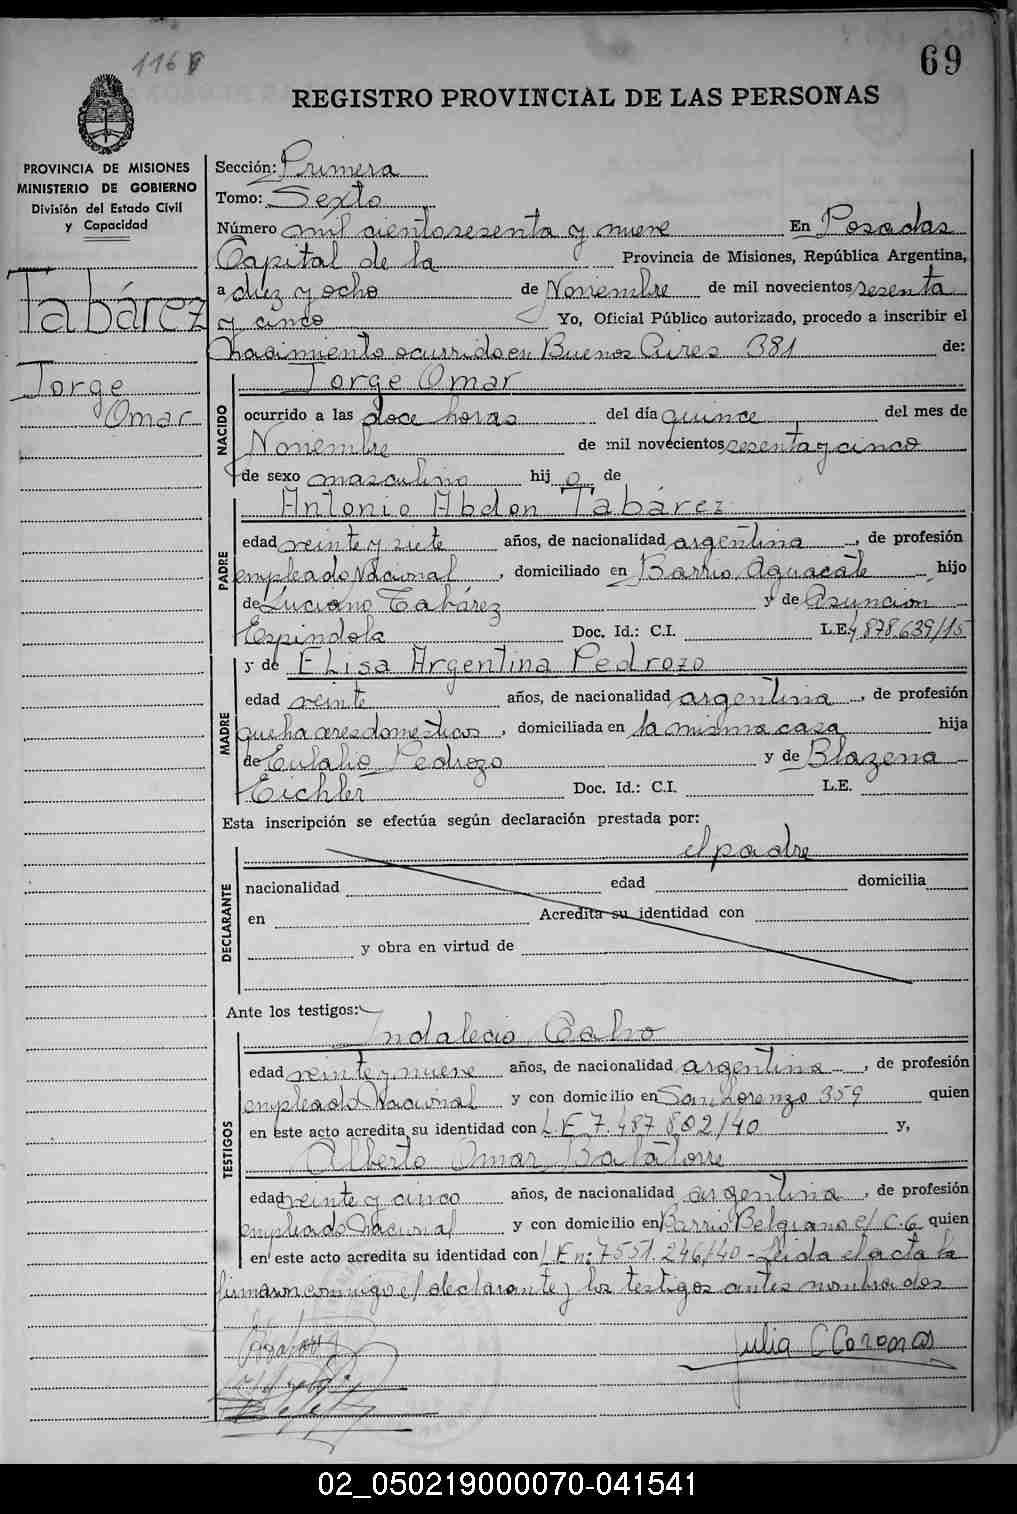 69
REGISTRO PROVINCIAL DE LAS PERSONAS
PROVINCIA DE MISIONES
MINISTERIO DE GOBIERNO
División del Estado Civil
y Capacidad
Tabárez
Jorge
Omar
Sección: Primera
Tomo: Sexto
Número mil ciento sesenta y nueve En Posadas
Capital de la Provincia de Misiones, República Argentina,
a diez y ocho de Noviembre de mil novecientos sesenta
y cinco Yo, Oficial Público autorizado, procedo a inscribir el
nacimiento ocurrido en Buenos Aires 381 de:
NACIDO
Jorge Omar
ocurrido a las doce horas del día quince del mes de
Noviembre de mil novecientos sesenta y cinco
de sexo masculino hij o de
PADRE
Antonio Abdon Tabárez
edad veinte y siete años, de nacionalidad argentina, de profesión
empleado Nacional, domiciliado en Barrio Aguacate hijo
de Luciano Tabárez y de Asunción
Espindola Doc. Id.: C.I. L.E. 4.878.639/15
MADRE
y de Elisa Argentina Pedrozo
edad veinte años, de nacionalidad argentina, de profesión
quehaceres domesticos, domiciliada en la misma casa hija
de Eulalio Pedrozo y de Blazena
Eichler Doc. Id.: C.I. L.E.
Esta inscripción se efectúa según declaración prestada por:
DECLARANTE
el padre
nacionalidad edad domicilia
en Acredita su identidad con
y obra en virtud de
Ante los testigos:
TESTIGOS
Indalecio Calvo
edad veinte y nueve años, de nacionalidad argentina, de profesión
empleado Nacional y con domicilio en San Lorenzo 359 quien
en este acto acredita su identidad con L.E 7.487.802/40 y,
Alberto Omar Balatorre
edad veinte y cinco años, de nacionalidad argentina, de profesión
empleado Nacional y con domicilio en Barrio Belgrano e/ C.6 quien
en este acto acredita su identidad con L.E n: 7551.246/40 - Leida el acta la
firmaron conmigo el declarante y los testigos antes nombrados
Julia C Coronas
02_050219000070-041541